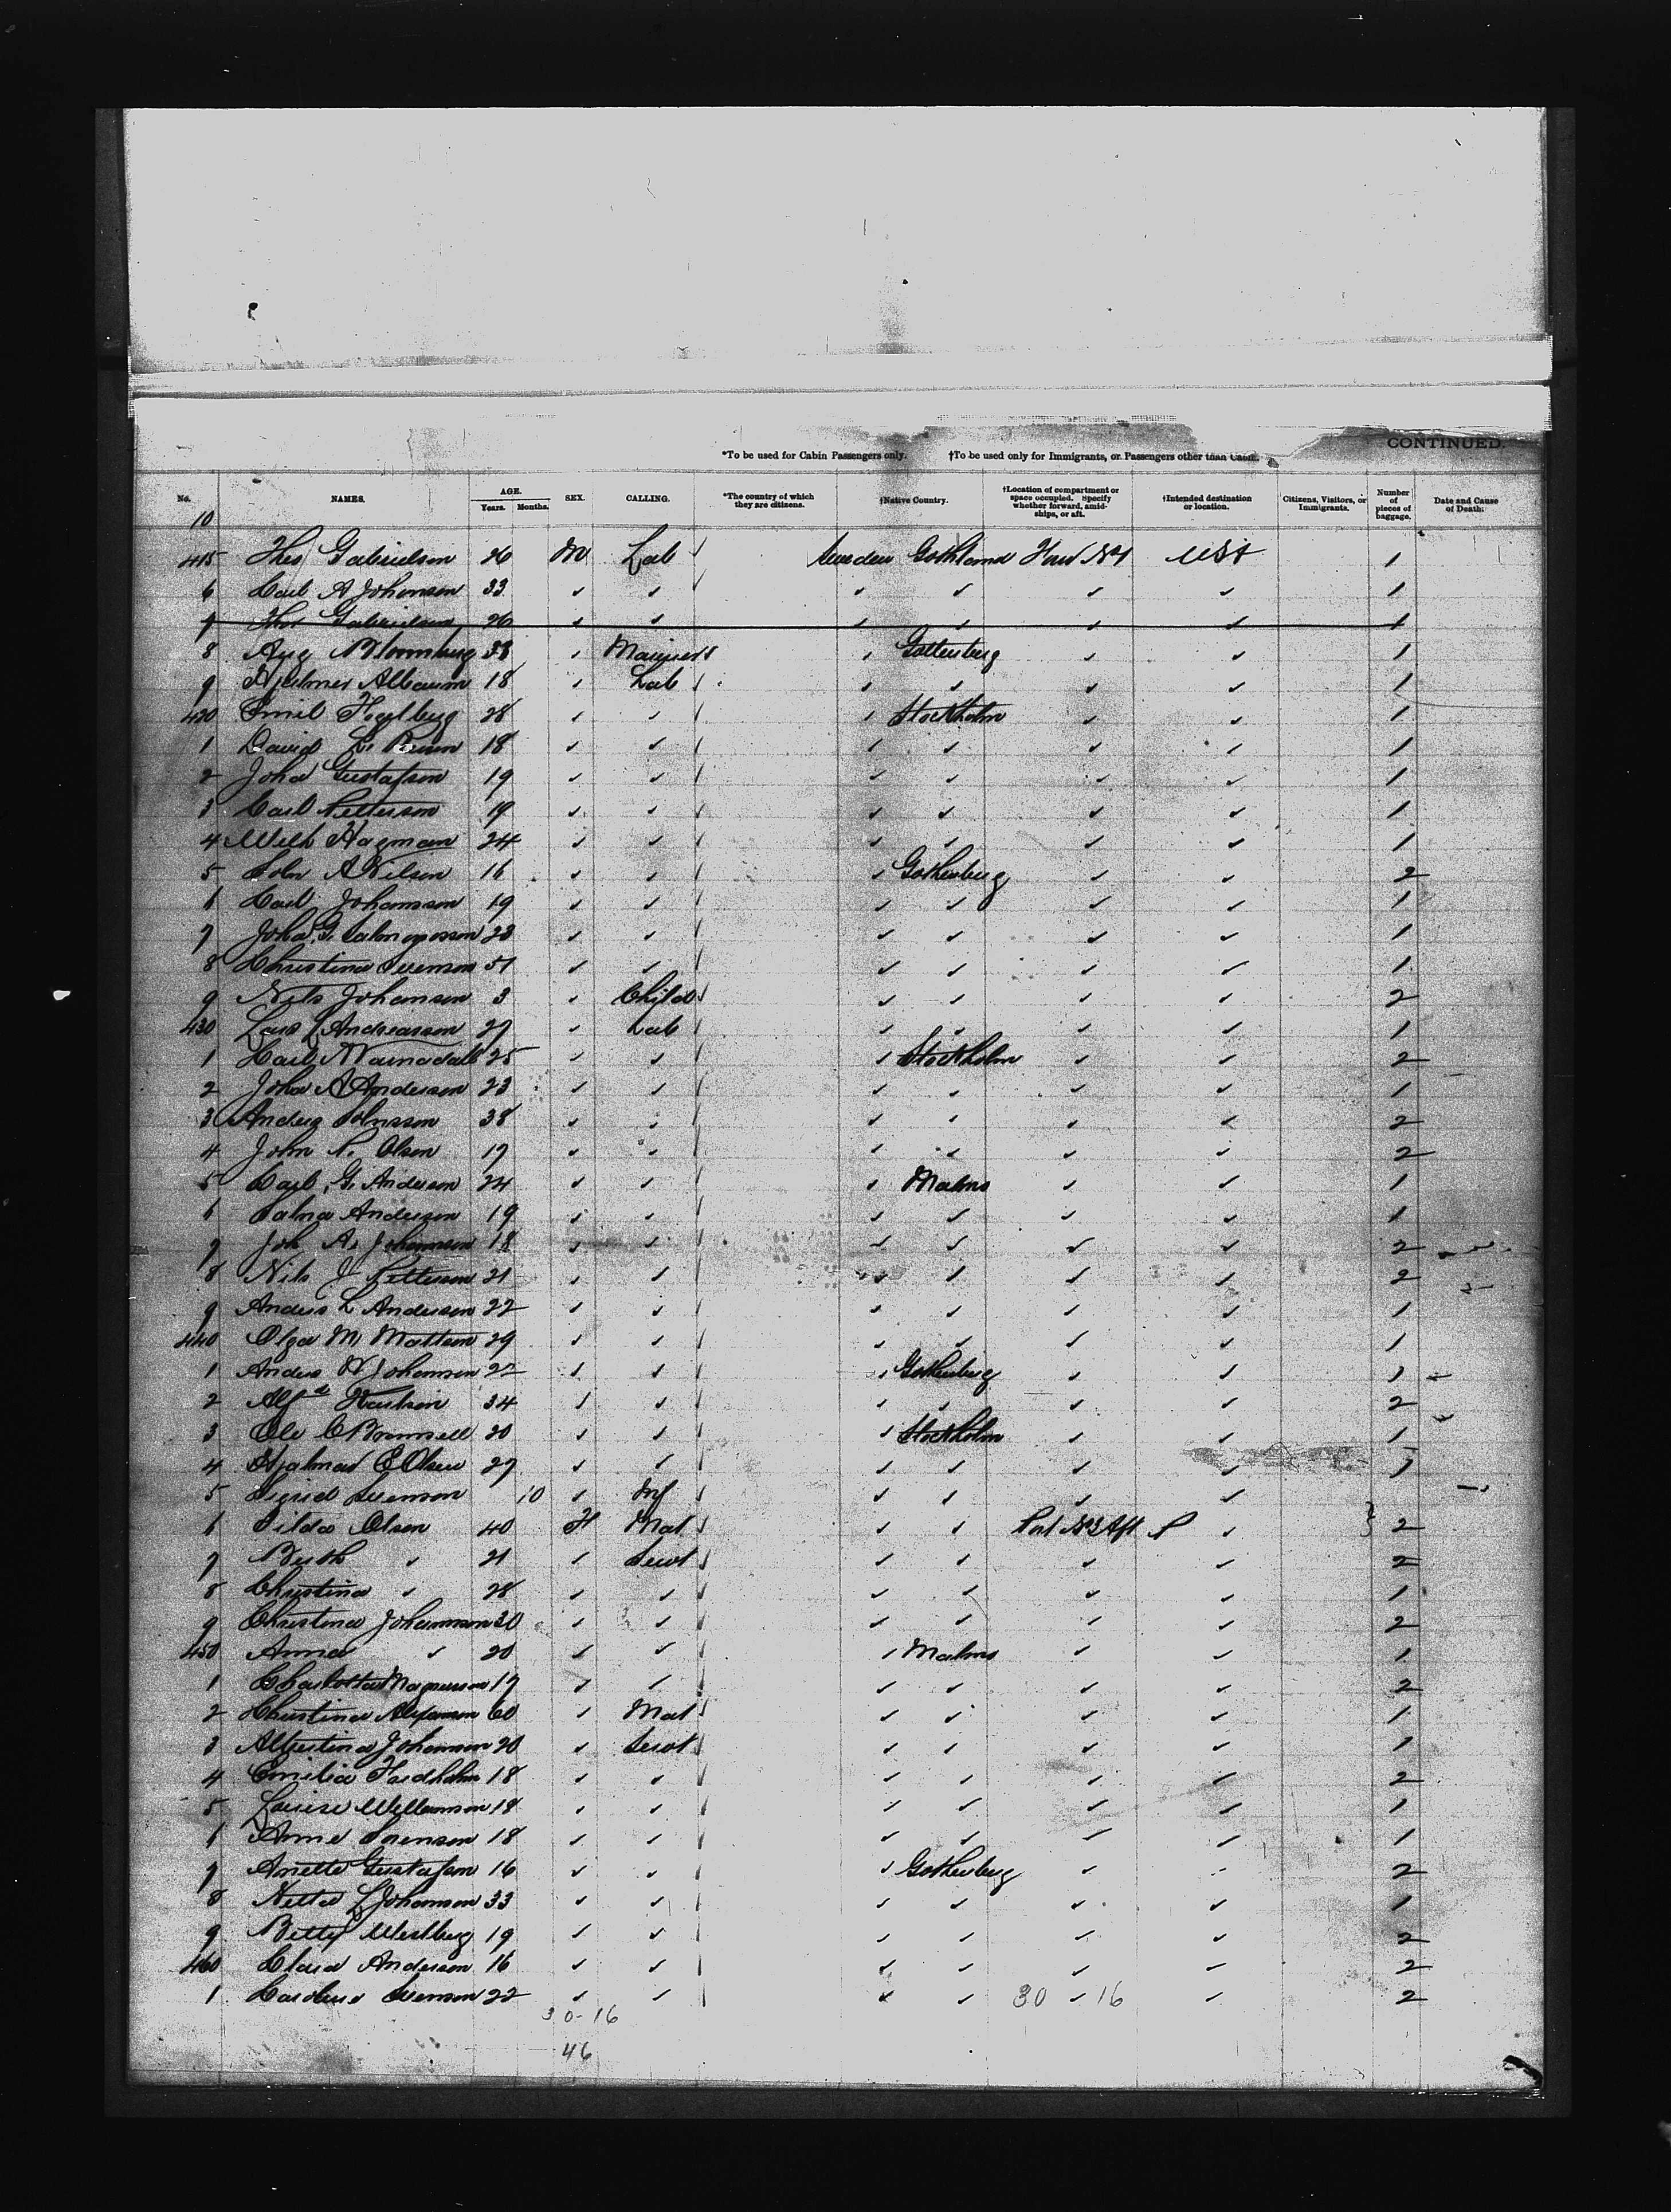 CONTINUED.
*To be used for Cabin Passengers only. †To be used only for Immigrants, or Passengers other than Cabin.
No. NAMES. AGE. Years. Months. SEX. CALLING. *The country of which they are citizens. †Native Country. †Location of compartment or space occupied. Specify whether forward, amidships, or aft. †Intended destination or location. Citizens, Visitors, or Immigrants. Number of pieces of baggage. Date and Cause of Death.
10
415 Thos Gabrielson 26 M Lab Sweden USA 1
6 Carl A Johanson 33 ✓ ✓ ✓ ✓ ✓ ✓ 1
7 Thos Gabrielson 26 ✓ ✓ ✓ ✓ ✓ ✓ 1
8 Aug Bloomberg 38 ✓ ✓ Gottenberg ✓ ✓ 1
9 Hjalmer 18 ✓ Lab ✓ ✓ ✓ ✓ 1
420 Emil 28 ✓ ✓ ✓ Stockholm ✓ ✓ 1
1 David 18 ✓ ✓ ✓ ✓ ✓ ✓ 1
2 Johd Gustafson 19 ✓ ✓ ✓ ✓ ✓ ✓ 1
3 Carl Petterson 19 ✓ ✓ ✓ ✓ ✓ ✓ 1
4 Wilh Hagman 24 ✓ ✓ ✓ ✓ ✓ ✓ 1
5 John A Nelson 16 ✓ ✓ ✓ Gothenberg ✓ ✓ 2
6 Carl Johansson 19 ✓ ✓ ✓ ✓ ✓ ✓ 1
7 Joha G. 23 ✓ ✓ ✓ ✓ ✓ ✓ 1
8 Christina Svenson 51 ✓ ✓ ✓ ✓ ✓ ✓ 1
9 Nils Johanson 3 ✓ Child ✓ ✓ ✓ ✓ 2
430 Lars Andreasson 27 ✓ Lab ✓ ✓ ✓ ✓ 1
1 Carl 25 ✓ ✓ ✓ Stockholm ✓ ✓ 2
2 Joha A Anderson 23 ✓ ✓ ✓ ✓ ✓ ✓ 1
3 Anders Johnsson 38 ✓ ✓ ✓ ✓ ✓ ✓ 2
4 John P. Olson 19 ✓ ✓ ✓ ✓ ✓ ✓ 2
5 Carl G. Anderson 24 ✓ ✓ ✓ Malmo ✓ ✓ 1
6 Anderson 19 ✓ ✓ ✓ ✓ ✓ ✓ 1
7 Joh A. Johanson 18 ✓ ✓ ✓ ✓ ✓ ✓ 2
8 Nils J Petterson 21 ✓ ✓ ✓ ✓ ✓ ✓ 2
9 Anders L Anderson 22 ✓ ✓ ✓ ✓ ✓ ✓ 1
440 Olga M Mattson 29 ✓ ✓ ✓ ✓ ✓ ✓ 1
1 Anders W Johanson 22 ✓ ✓ ✓ Gothenberg ✓ ✓ 1
2 Alfd 34 ✓ ✓ ✓ ✓ ✓ ✓ 2
3 Ole C 20 ✓ ✓ ✓ Stockholm ✓ ✓ 1
4 Hjalmar E Olsen 27 ✓ ✓ ✓ ✓ ✓ ✓ 1
5 Sigrid Svenson 10 ✓ Inf ✓ ✓ ✓ ✓
6 Tilda Olson 40 F Mat ✓ ✓ Port No3 Aft ✓ 2
7 Berth ✓ 21 ✓ Servt ✓ ✓ ✓ ✓ 2
8 Christina ✓ 28 ✓ ✓ ✓ ✓ ✓ ✓ 1
9 Christina Johannson 30 ✓ ✓ ✓ ✓ ✓ ✓ 2
450 Anna ✓ 20 ✓ ✓ ✓ Malmo ✓ ✓ 1
1 Charlotta Magnusson 17 ✓ ✓ ✓ ✓ ✓ ✓ 2
2 Christina 60 ✓ Mat ✓ ✓ ✓ ✓ 1
3 Albertina Johanson 20 ✓ Servt ✓ ✓ ✓ ✓ 1
4 Emilia 18 ✓ ✓ ✓ ✓ ✓ ✓ 2
5 Louise Williamson 18 ✓ ✓ ✓ ✓ ✓ ✓ 1
6 Anna Sorenson 18 ✓ ✓ ✓ ✓ ✓ ✓ 1
7 Anette Gustafson 16 ✓ ✓ ✓ Gothenberg ✓ 2
8 L Johanson 33 ✓ ✓ ✓ ✓ ✓ ✓ 1
9 Betty Westberg 19 ✓ ✓ ✓ ✓ ✓ ✓ 2
460 Clara Anderson 16 ✓ ✓ ✓ ✓ ✓ ✓ 2
1 Caroline Svenson 22 ✓ ✓ ✓ ✓ 30 ✓ 16 ✓ 2
30-16
46